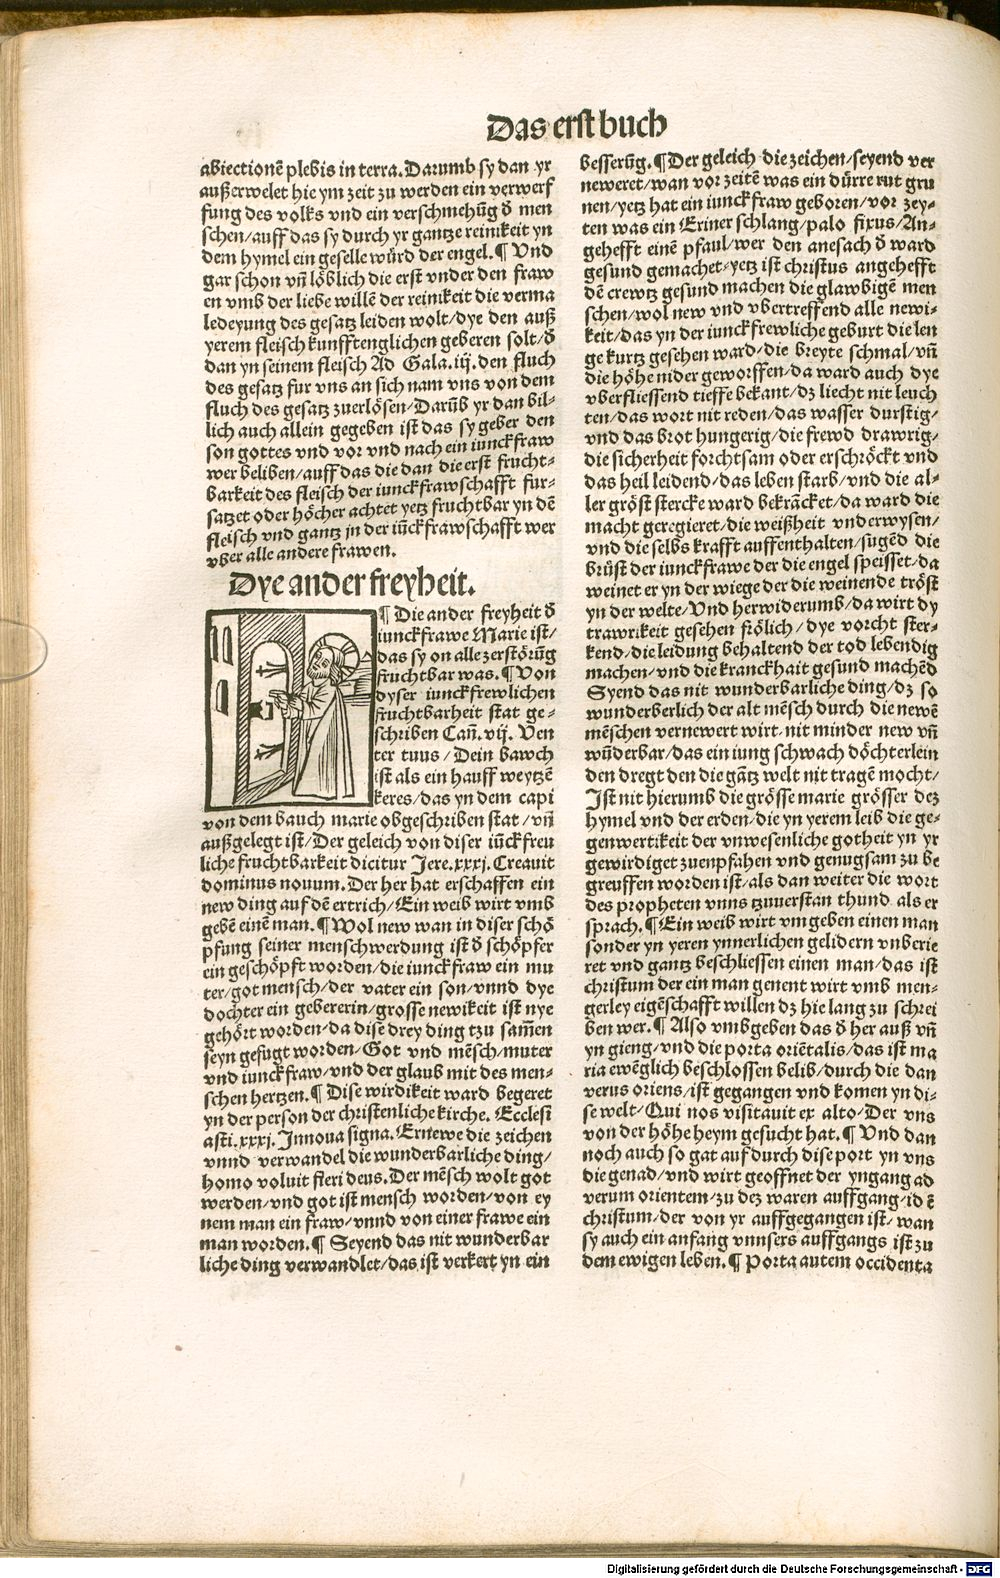 Das erst buch
abiectionē plebis in terra. Darumb sy dan yr
außerwelet hie ym zeit zu werden ein verwerf
fung des volks vnd ein verschmehūg d̄ men
schen/auff das sy durch yr gantze reinikeit yn
dem hymel ein geselle würd der engel. ¶ Vnd
gar schon vn̄ löblich die erst vnder den fraw
en vmb der liebe willē der reinikeit die verma
ledeyung des gesatz leiden wolt/dye den auß
yerem fleisch kunfftenglichen geberen solt/d̄
dan yn seinem fleisch Ad Gala. iij. den fluch
des gesatz fur vns an sich nam vns von dem
fluch des gesatz zuerlösen/Darūb yr dan bil-
lich auch allein gegeben ist das sy geber den
son gottes vnd vor vnd nach ein iunckfraw
wer beliben/auff das die dan die erst frucht-
barkeit des fleisch der iunckfrawschafft fur-
satzet oder höcher achtet yetz fruchtbar yn dē
fleisch vnd gantz in der iūckfrawschafft wer
vber alle andere frawen.
Dye ander freyheit.
¶ Die ander freyheit d̄
iunckfrawe Marie ist/
das sy on alle zerstörūg
fruchtbar was. ¶ Von
dyser iunckfrewlichen
fruchtbarheit stat ge-
schriben Can̄. vij. Ven
ter tuus/Dein bawch
ist als ein hauff weytzē
keres/das yn dem capi
von dem bauch marie obgeschriben stat/vn̄
außgelegt ist/Der geleich von diser iūckfreu
liche fruchtbarkeit dicitur Jere. xxxj. Creauit
dominus nouum. Der her hat erschaffen ein
new ding auf dē ertrich/Ein weib wirt vmb
gebē einē man. ¶ Wol new wan in diser schö
pfung seiner menschwerdung ist d̄ schöpfer
ein geschöpft worden/die iunckfraw ein mu
ter/got mensch/der vater ein son/vnnd dye
dochter ein gebererin/grosse newikeit ist nye
gehört worden/da dise drey ding tzu sam̄en
seyn gefugt worden. Got vnd mēsch/muter
vnd iunckfraw/vnd der glaub mit des men-
schen hertzen. ¶ Dise wirdikeit ward begeret
yn der person der christenliche kirche. Ecclesi
asti. xxxj. Innoua signa. Ernewe die zeichen
vnnd verwandel die wunderbarliche ding/
homo voluit fieri deus. Der mēsch wolt got
werden/vnd got ist mensch worden/von ey
nem man ein fraw/vnnd von einer frawe ein
man worden. ¶ Seyend das nit wunderbar
liche ding verwandlet/das ist verkert yn ein
besserūg. ¶ Der geleich die zeichen/seyend ver
neweret/wan vor zeitē was ein dürre rut gru
nen/yetz hat ein iunckfraw geboren/vor zey-
ten was ein Eriner schlang/palo fixus/An-
gehefft einē pfaul/wer den anesach d̄ ward
gesund gemachet/yetz ist christus angehefft
dē crewtz gesund machen die glawbigē men
schen/wol new vnd vbertreffend alle newi-
keit/das yn der iunckfrewliche geburt die len
ge kurtz gesehen ward/die breyte schmal/vn̄
die höhe nider geworffen/da ward auch dye
vberfliessend tieffe bekant/dz liecht nit leuch
ten/das wort nit reden/das wasser durstig/
vnd das brot hungerig/die frewd drawrig/
die sicherheit forchtsam oder erschröckt vnd
das heil leidend/das leben starb/vnd die al-
ler gröst stercke ward bekrācket/da ward die
macht geregieret/die weißheit vnderwysen/
vnd die selbs krafft auffenthalten/sugēd die
brüst der iunckfrawe der die engel speisset/da
weinet er yn der wiege der die weinende tröst
yn der welte/Vnd herwiderumb/da wirt dy
trawrikeit gesehen frölich/dye vorcht ster-
kend/die leidung behaltend der tod lebendig
machen/vnd die kranckhait gesund machēd
Syend das nit wunderbarliche ding/dz so
wunderberlich der alt mēsch durch die newē
mēschen vernewert wirt/nit minder new vn̄
wūderbar/das ein iung schwach döchterlein
den dregt den die gātz welt nit tragē mocht/
Ist nit hierumb die grösse marie grösser dez
hymel vnd der erden/die yn yerem leib die ge-
genwertikeit der vnwesenliche gotheit yn yr
gewirdiget zuenpfahen vnd genugsam zu be
greuffen worden ist/als dan weiter die wort
des propheten vnns tzuuerstan thund als er
sprach. ¶ Ein weib wirt vmgeben einen man
sonder yn yeren ynnerlichen gelidern vnberie
ret vnd gantz beschliessen einen man/das ist
christum der ein man genent wirt vmb men-
gerley eigēschafft willen dz hie lang zu schrei
ben wer. ¶ Also vmbgeben das d̄ her auß vn̄
yn gieng/vnd die porta oriētalis/das ist ma
ria ewēglich beschlossen belib/durch die dan
verus oriens/ist gegangen vnd komen yn di-
se welt/Qui nos visitauit ex alto/Der vns
von der höhe heym gesucht hat. ¶ Vnd dan
noch auch so gat auf durch dise port yn vns
die genad/vnd wirt geoffnet der yngang ad
verum orientem/zu dez waren auffgang/id ē
christum/der von yr auffgegangen ist/wan
sy auch ein anfang vnnsers auffgangs ist zu
dem ewigen leben. ¶ Porta autem occidenta
Digitalisierung gefördert durch die Deutsche Forschungsgemeinschaft - DFG